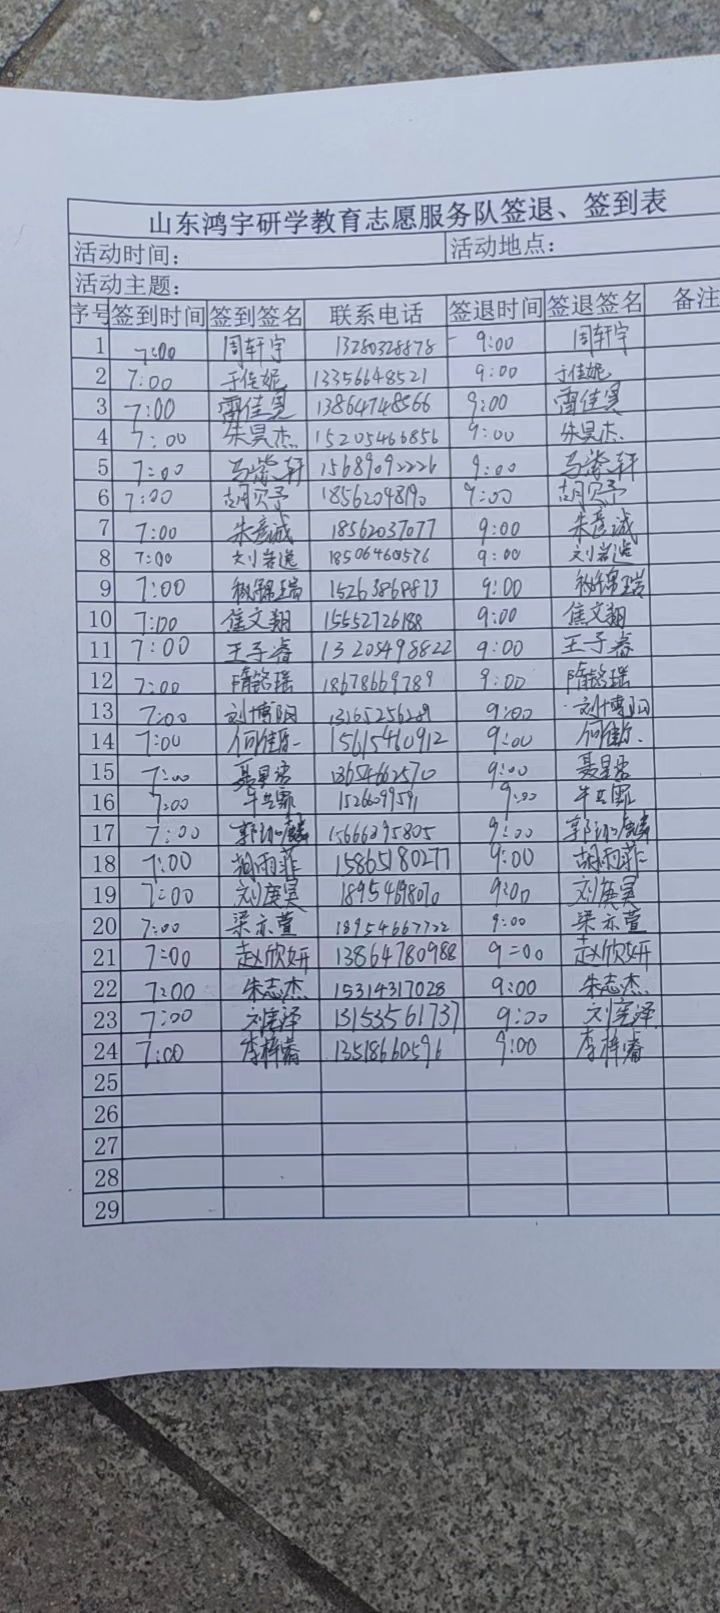 山东鸿宇研学教育志愿服务队签退、签到表
活动时间: 活动地点:
活动主题:
序号 签到时间 签到签名 联系电话 签退时间 签退签名 备注
1 7:00 周轩宇 13280328878 9:00 周轩宇
2 7:00 于佳妮 13356648521 9:00 于佳妮
3 7:00 雷佳昊 13864748566 9:00 雷佳昊
4 7:00 朱昊杰 15205466856 9:00 朱昊杰
5 7:00 马紫轩 15689092226 9:00 马紫轩
6 7:00 胡贝予 18562048190 9:00 胡贝予
7 7:00 朱彦诚 18562037077 9:00 朱彦诚
8 7:00 刘岩逸 18506460576 9:00 刘岩逸
9 7:00 15263868873 9:00
10 7:00 焦文翔 15552726188 9:00 焦文翔
11 7:00 王子睿 13205498822 9:00 王子睿
12 7:00 隋铭瑶 18678669789 9:00 隋铭瑶
13 7:00 刘博阳 13165256289 9:00 刘博阳
14 7:00 15615460912 9:00
15 7:00 13654662570 9:00
16 7:00 9:00
17 7:00 15666295805 9:00
18 7:00 胡雨菲 15865180277 9:00 胡雨菲
19 7:00 刘庭昊 18954698070 9:00 刘庭昊
20 7:00 梁亦萱 18954667722 9:00 梁亦萱
21 7:00 赵欣妍 13864780988 9:00 赵欣妍
22 7:00 朱志杰 15314317028 9:00 朱志杰
23 7:00 刘宪泽 13153561737 9:00 刘宪泽
24 7:00 李梓睿 13518660596 9:00 李梓睿
25
26
27
28
29